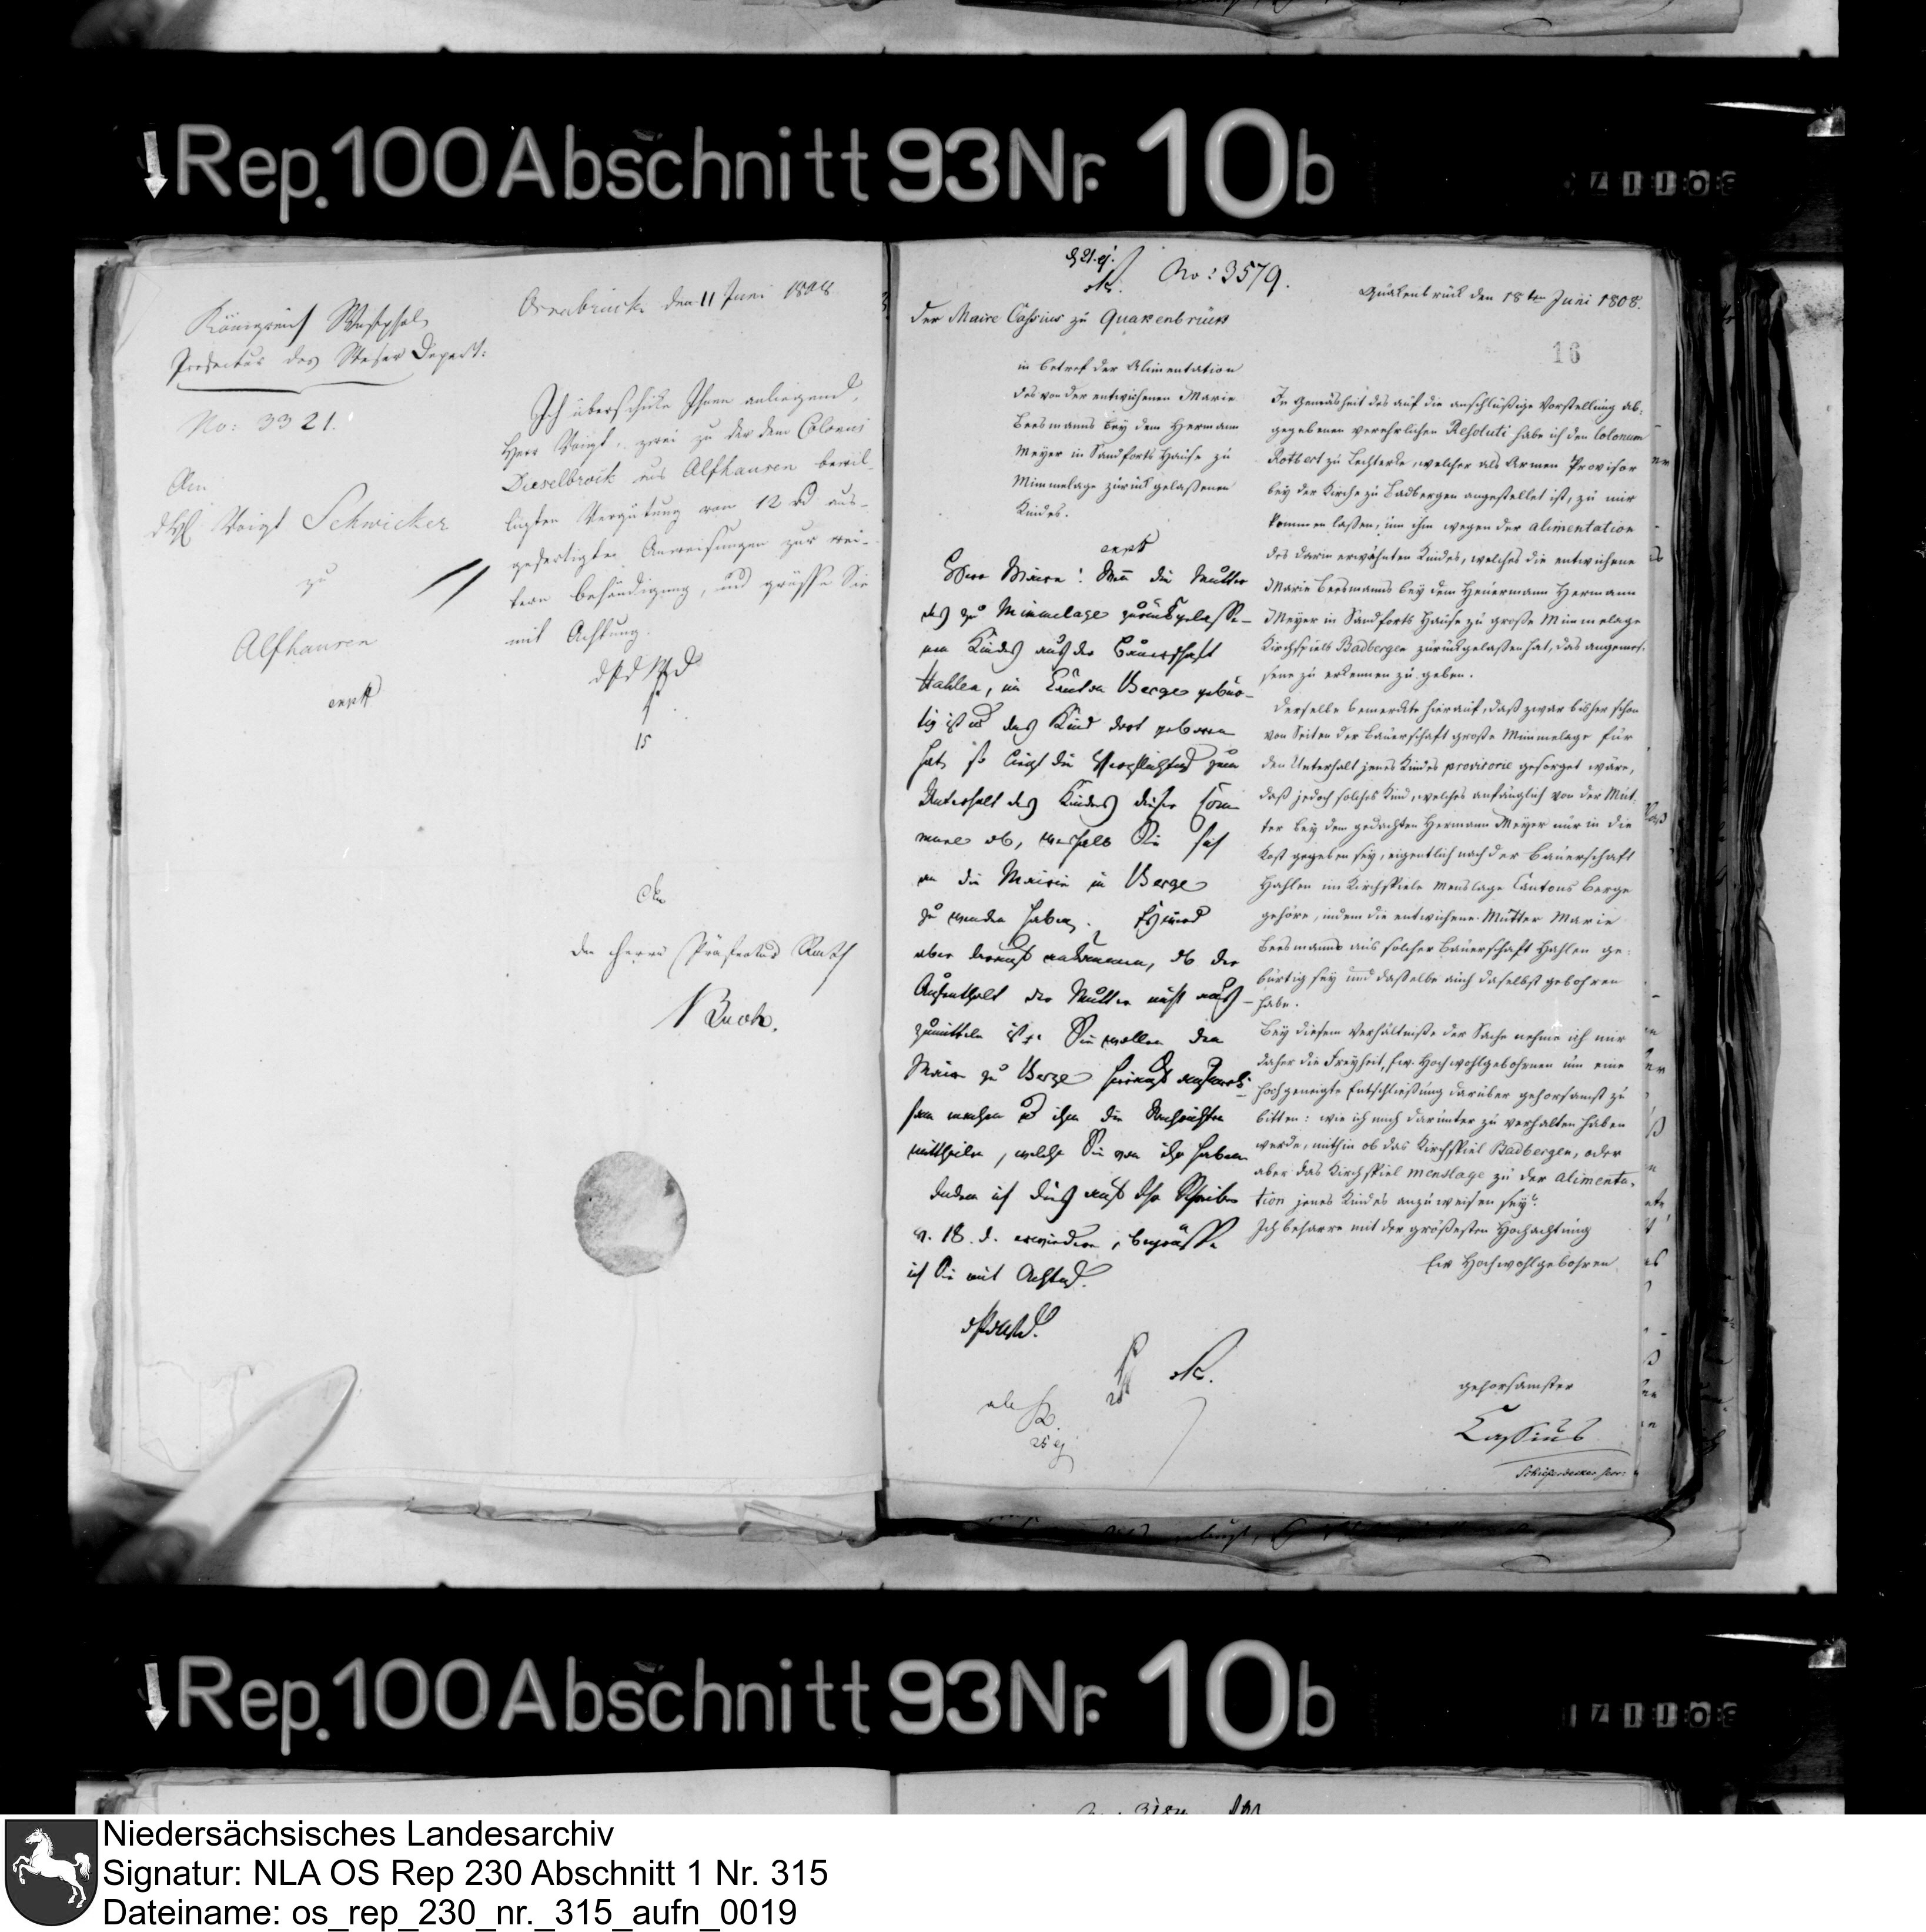 Rep. 100 Abschnitt 93 Nr. 10b
Königreich Westphal.
Praefectur des Weser Depart:
No: 3321.
An
d H Voigt Schwicker
zu
Alfhausen
expdt
Osnabrück den 11 Juni 1808
Ich überschicke Ihnen anliegend,
Herr Voigt, zwei zu der dem Colonus
Dieselbrock aus Alfhausen bewil-
ligten Vergütung von 12 aus-
gefertigte Anweisungen zur wei-
tern behändigung, und grüsse Sie
mit Achtung.
15
An
den Herrn Präfectur Rath
Buch.
No: 3579.
Quakenbrück den 18ten Juni 1808.
Der Maire Cassius zu Quakenbrück
16
in betref der Alimentation
des von der entwichenen Marie
Beesmanns bey dem Hermann
Meyer in Sandforts Hause zu
Mimmelage zurück gelaßenen
Kindes.
expdt
Herr Maire! Wenn die Mutter
des zu Mimmelage zurückgelasse-
nen Kindes aus der Bauerschaft
Hahlen, im Canton Berge gebür-
tig ist u das Kind dort geboren
hat, so liegt die Verpflichtung zum
Unterhalt des Kindes dieser Com-
mune ob, weshalb Sie sich
an die Mairie in Berge
zu wenden haben.
aber ob der
Aufenthalt der Mutter nicht aus-
zumitteln ist. Sie wollen den
Maire zu Berge hierauf aufmerk-
sam machen u ihm die Nachrichten
mittheilen, welche Sie von ihr haben.
Indem ich dies auf Ihr Schreiben
v. 18. d. erwiedere, begrüsse
ich Sie mit Achtung.
In Gemäsheit des auf die anschlüßige Vorstellung ab-
gegebenen verehrlichen Resoluti habe ich den Colonum
Rotbert zu Lechterke, welcher als Armen Provisor
bey der Kirche zu Badbergen angestellet ist, zu mir
kommen laßen, um ihm wegen der alimentation
des darin erwähnten Kindes, welches die entwichene
Marie Beesmanns bey dem Heuermann Hermann
Meyer in Sandforts Hause zu große Mimmelage
Kirchspiels Badbergen zurückgelaßen hat, das angemes-
sene zu erkennen zu geben.
Derselbe bemerkte hierauf, daß zwar bisher schon
von Seiten der Bauerschaft große Mimmelage für
den Unterhalt jenes Kindes provisorie gesorget wäre,
daß jedoch solches Kind, welches anfänglich von der Mut-
ter bey dem gedachten Hermann Meyer nur in die
Kost gegeben sey, eigentlich nach der Bauerschaft
Hahlen im Kirchspiele Menslage Cantons Berge
gehöre, indem die entwichene Mutter Marie
Beesmanns aus solcher Bauerschaft Hahlen ge-
bürtig sey und daßelbe auch daselbst gebohren
habe.
Bey diesem Verhältniße der Sache nehme ich mir
daher die Freyheit, Ew. Hochwohlgebohrnen um eine
hochgeneigte Entschließung darüber gehorsamst zu
bitten: wie ich mich darunter zu verhalten haben
werde, mithin ob das Kirchspiel Badbergen, oder
aber das Kirchspiel Menslage zu der alimenta-
tion jenes Kindes anzuweisen sey?
Ich beharre mit der größesten Hochachtung
Ew Hochwohlgebohren
gehorsamster
Cassius
Rep. 100 Abschnitt 93 Nr. 10b
Niedersächsisches Landesarchiv
Signatur: NLA OS Rep 230 Abschnitt 1 Nr. 315
Dateiname: os_rep_230_nr._315_aufn_0019